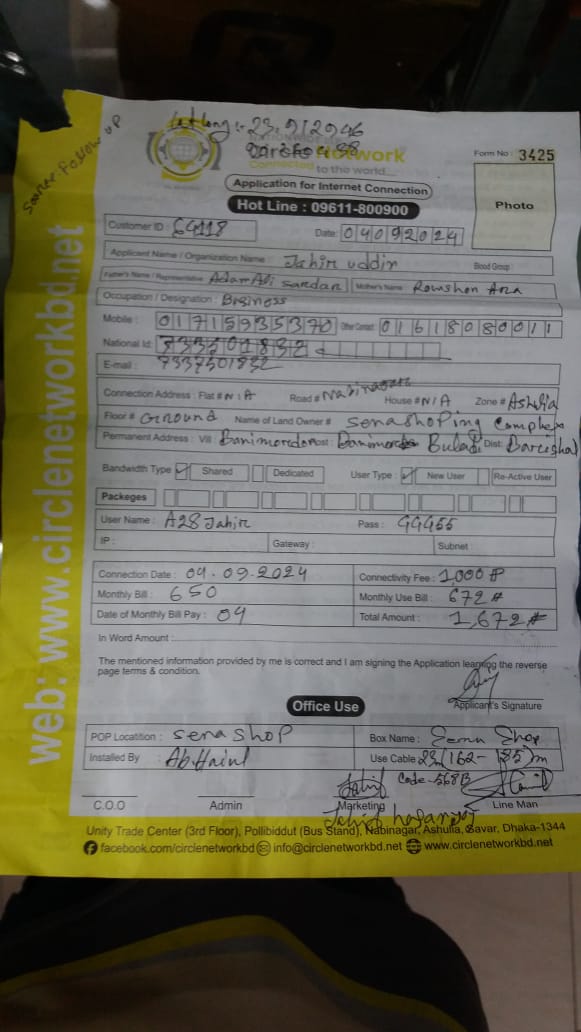 Lat Long:- 23.912946
NATIONWIDE
Circle Network
Connected to the world...
Sooner follow up
Form No : 3425
Application for Internet Connection
Hot Line : 09611-800900
Photo
Customer ID : 64118
Date: 04092024
Applicant Name / Organization Name : Jahir uddin
Blood Group :
Father's Name / Representative Adam Ali Sardar Mother's Name Rowshon Ara
Occupation / Designation : Business
Mobile : 01715935370 Other Contact 01618080011
National Id:
E-mail : 7337501832
Connection Address : Flat # N/A Road # Nabinagar House # N/A Zone # Ashulia
Floor # Ground Name of Land Owner # Sena Shoping Complex
Permanent Address : Vill Banimordon Post : Dist: Barishal
Bandwidth Type Shared Dedicated User Type : New User Re-Active User
Packeges
User Name : A28 Jahir Pass : 44455
IP : Gateway : Subnet :
Connection Date : 04.09.2024 Connectivity Fee : 1,000
Monthly Bill : 650 Monthly Use Bill : 672
Date of Monthly Bill Pay : 04 Total Amount : 1,672
In Word Amount :
The mentioned information provided by me is correct and I am signing the Application learning the reverse
page terms & condition.
Applicant's Signature
Office Use
POP Locatition : Sena Shop Box Name : Sena Shop
Installed By : Use Cable 23(162-185)m
Code-568B
C.O.O Admin Marketing Line Man
Unity Trade Center (3rd Floor), Pollibiddut (Bus Stand), Nabinagar, Ashulia, Savar, Dhaka-1344
facebook.com/circlenetworkbd info@circlenetworkbd.net www.circlenetworkbd.net
web: www.circlenetworkbd.net